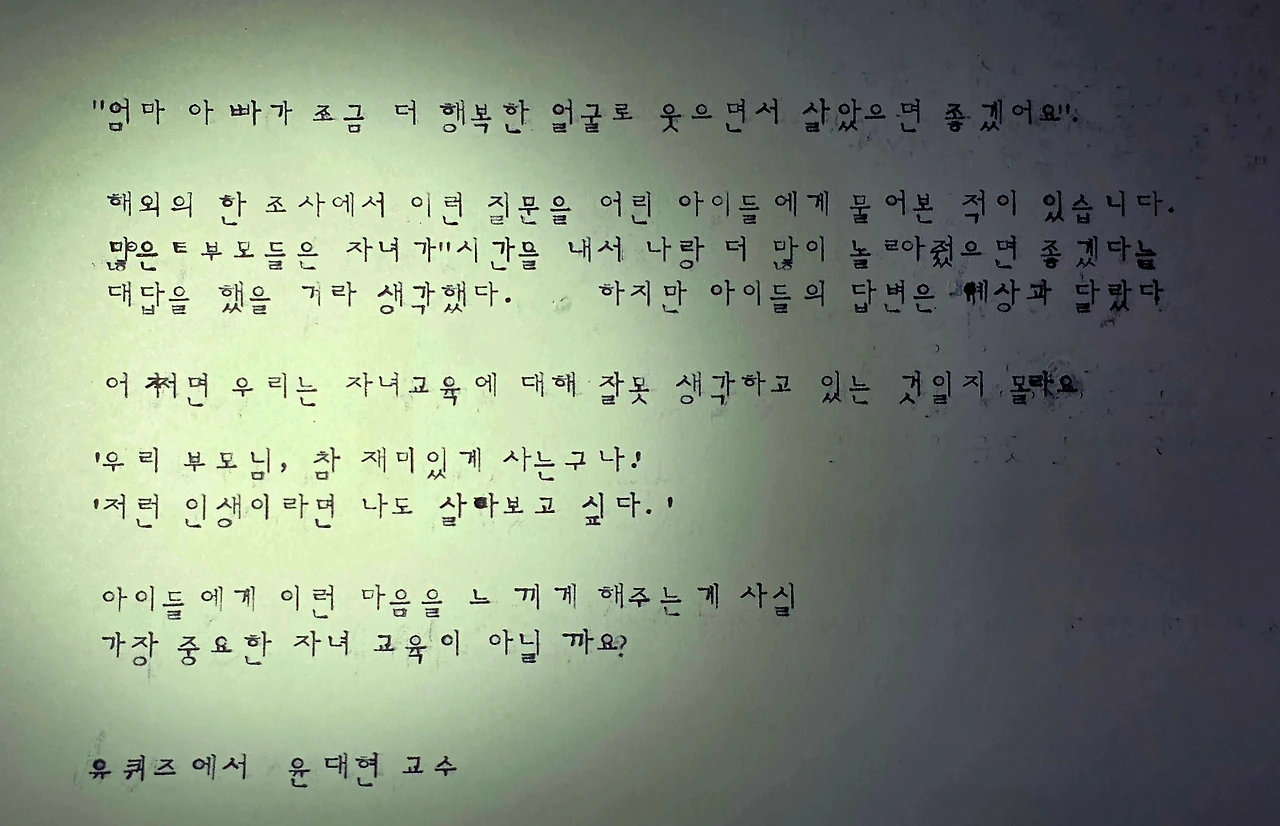 "엄마 아빠가 조금 더 행복한 얼굴로 웃으면서 살았으면 좋겠어요".
해외의 한 조사에서 이런 질문을 어린 아이들에게 물어본 적이 있습니다.
많은 부모들은 자녀가"시간을 내서 나랑 더 많이 놀아줬으면 좋겠다는
대답을 했을 거라 생각했다. 하지만 아이들의 답변은 예상과 달랐다
어쩌면 우리는 자녀교육에 대해 잘못 생각하고 있는 것일지 몰라요
'우리 부모님, 참 재미있게 사는구나!'
'저런 인생이라면 나도 살아보고 싶다.'
아이들에게 이런 마음을 느끼게 해주는게 사실
가장 중요한 자녀 교육이 아닐까요?
유퀴즈에서 윤대현 교수